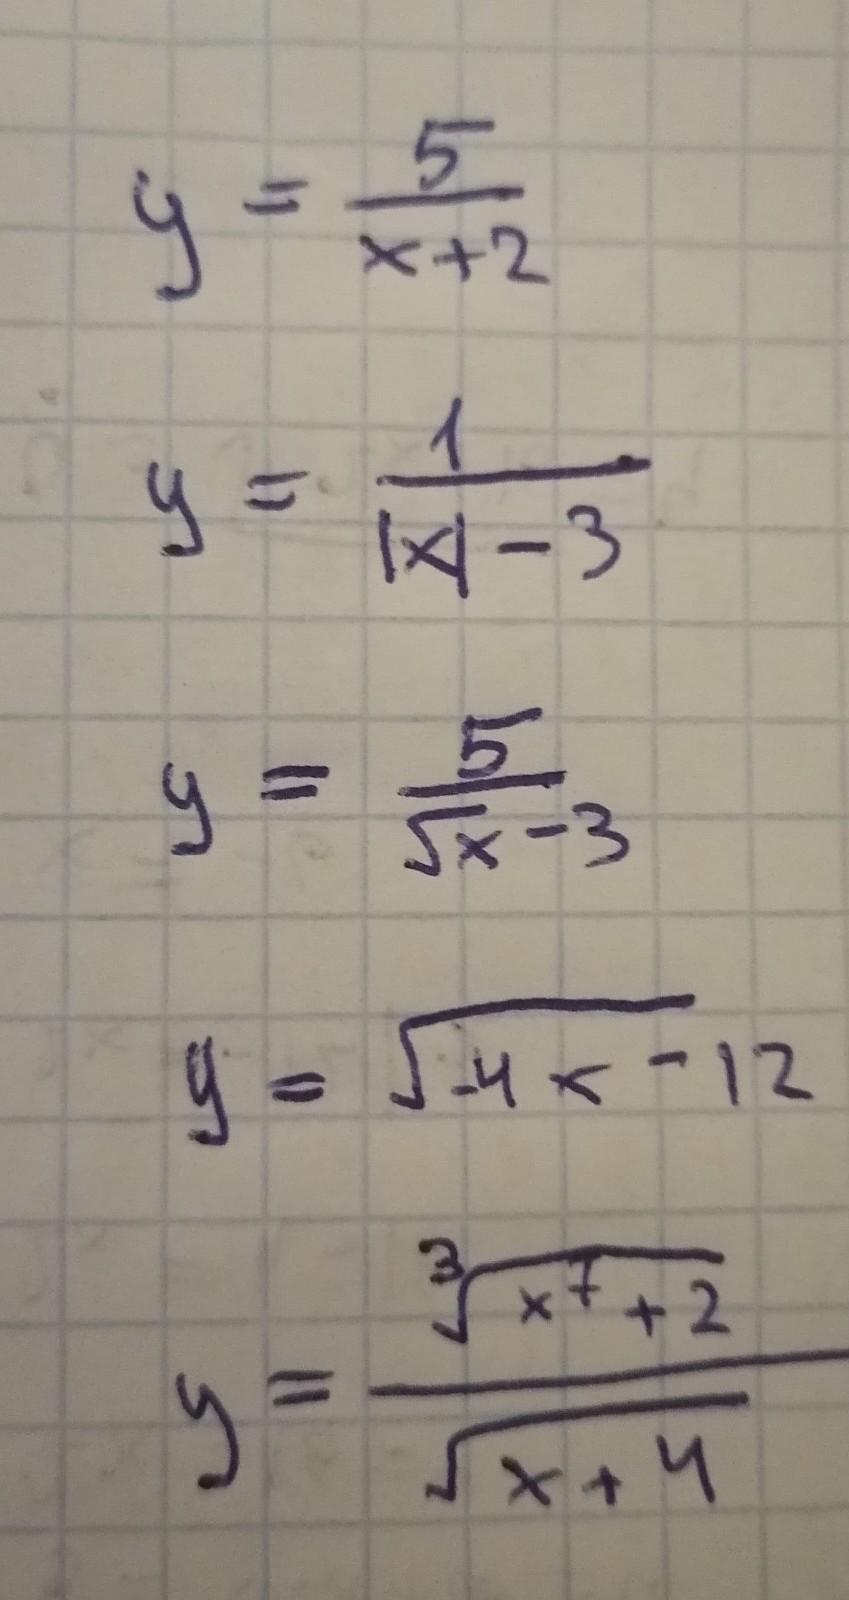 y = 5/(x+2)
y = 1/(|x| - 3)
y = 5/(√x - 3)
y = √(-4x - 12)
y = ∛(x⁷ + 2)/√(x + 4)